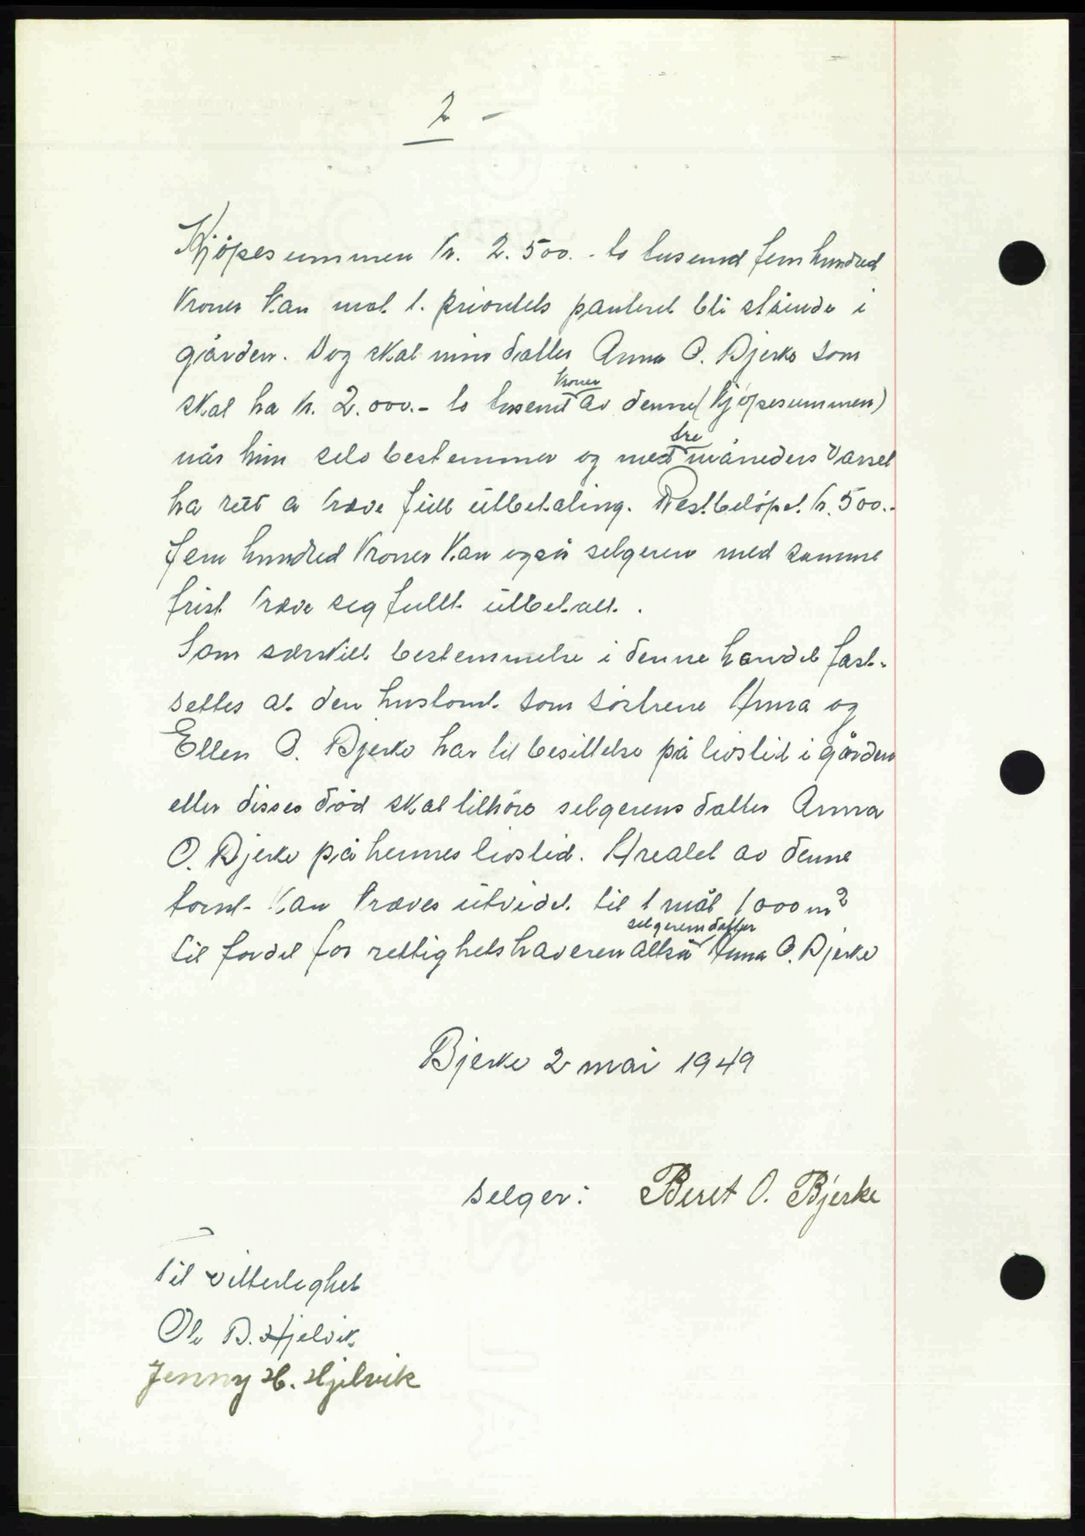 2 -
Kjöpesummen kr. 2.500.- to tusend fem hundred
kroner kan mot 1. prioritets panteret bli stående i
gården. Dog skal min datter Anna O. Bjerke som
skal ha kr. 2.000.- to tusend kroner av denne (kjöpesummen)
når hun selv bestemmer og med tre måneders varsel
ha rett a kræve full utbetaling. Restbelöpet kr. 500.-
fem hundred kroner kan også selgeren med samme
frist kræve seg fullt utbetalt.
Som særskilt bestemmelse i denne handel fast-
settes at den hustomt som söstrene Anna og
Ellen O. Bjerke har til besittelse på livstid i gården
etter disses död skal tilhöre selgerens datter Anna
O. Bjerke på hennes livstid. Arealet av denne
tomt kan kræves utvidet til 1 mål 1000 m²
til fordel for rettighetshaveren altså selgerens datter Anna O. Bjerke
Bjerke 2 mai 1949
selger: Beret O. Bjerke
Til vitterleghet
Ole B. Hjelvik
Jenny H. Hjelvik